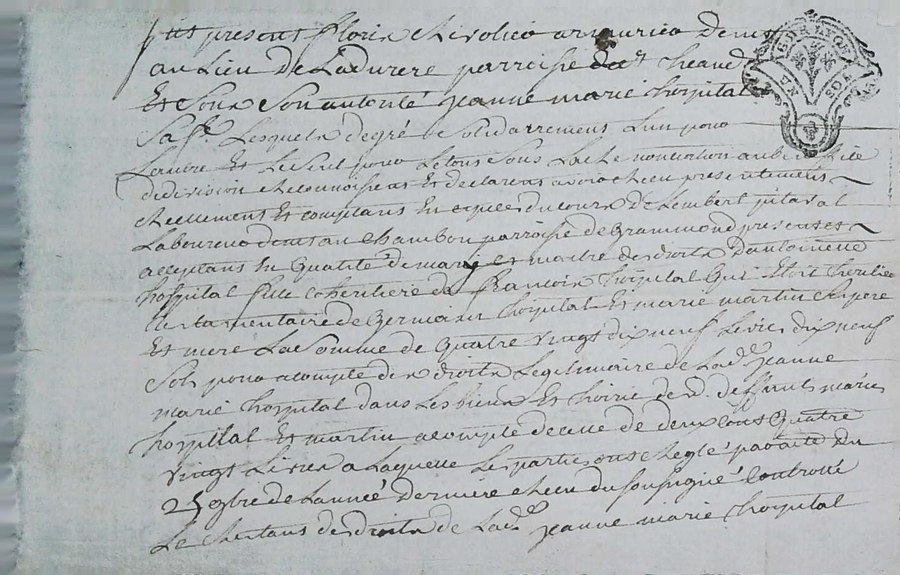 fut present Florix Chevolico armurier dem
au Lieu De Ladurere parroisse de St heand
Et Sous Son autorité jeanne marie hospital
Sa fe. Lesquels de gré & Solidairement Lun pour
Lautre Et Le Seul pour Le tous Sous La
de division checonnoissens Et declarent avoir cheçu presentement
cheellement Et comptans En especes du cours De Lembert pitaval
Laboureur demt au Chambon parroisse de Grammond presens
acceptans En qualité de mary Et maitre des droits Dantoinette
hospital fille coheritiere de françois hospital qui Etoit heritier
testamentaire de Germain hospital Et marie martin Ses pere
Et mere La Somme de quatre vingt dix neuf Livres dix neuf
Sols pour acompte des droits Legitimaire de Lade. jeanne
marie hospital dans Les biens Et hoirie des d. deffunts mariés
hospital Et martin acompte decelle de deux Cens quatre
vingt Livres a Laquelle Les parties ont cheglé par acte du
25 9bre de Lannée Derniere cheçu du soussigné Controllé
Le chestans des droits de Lade. jeanne marie hospital